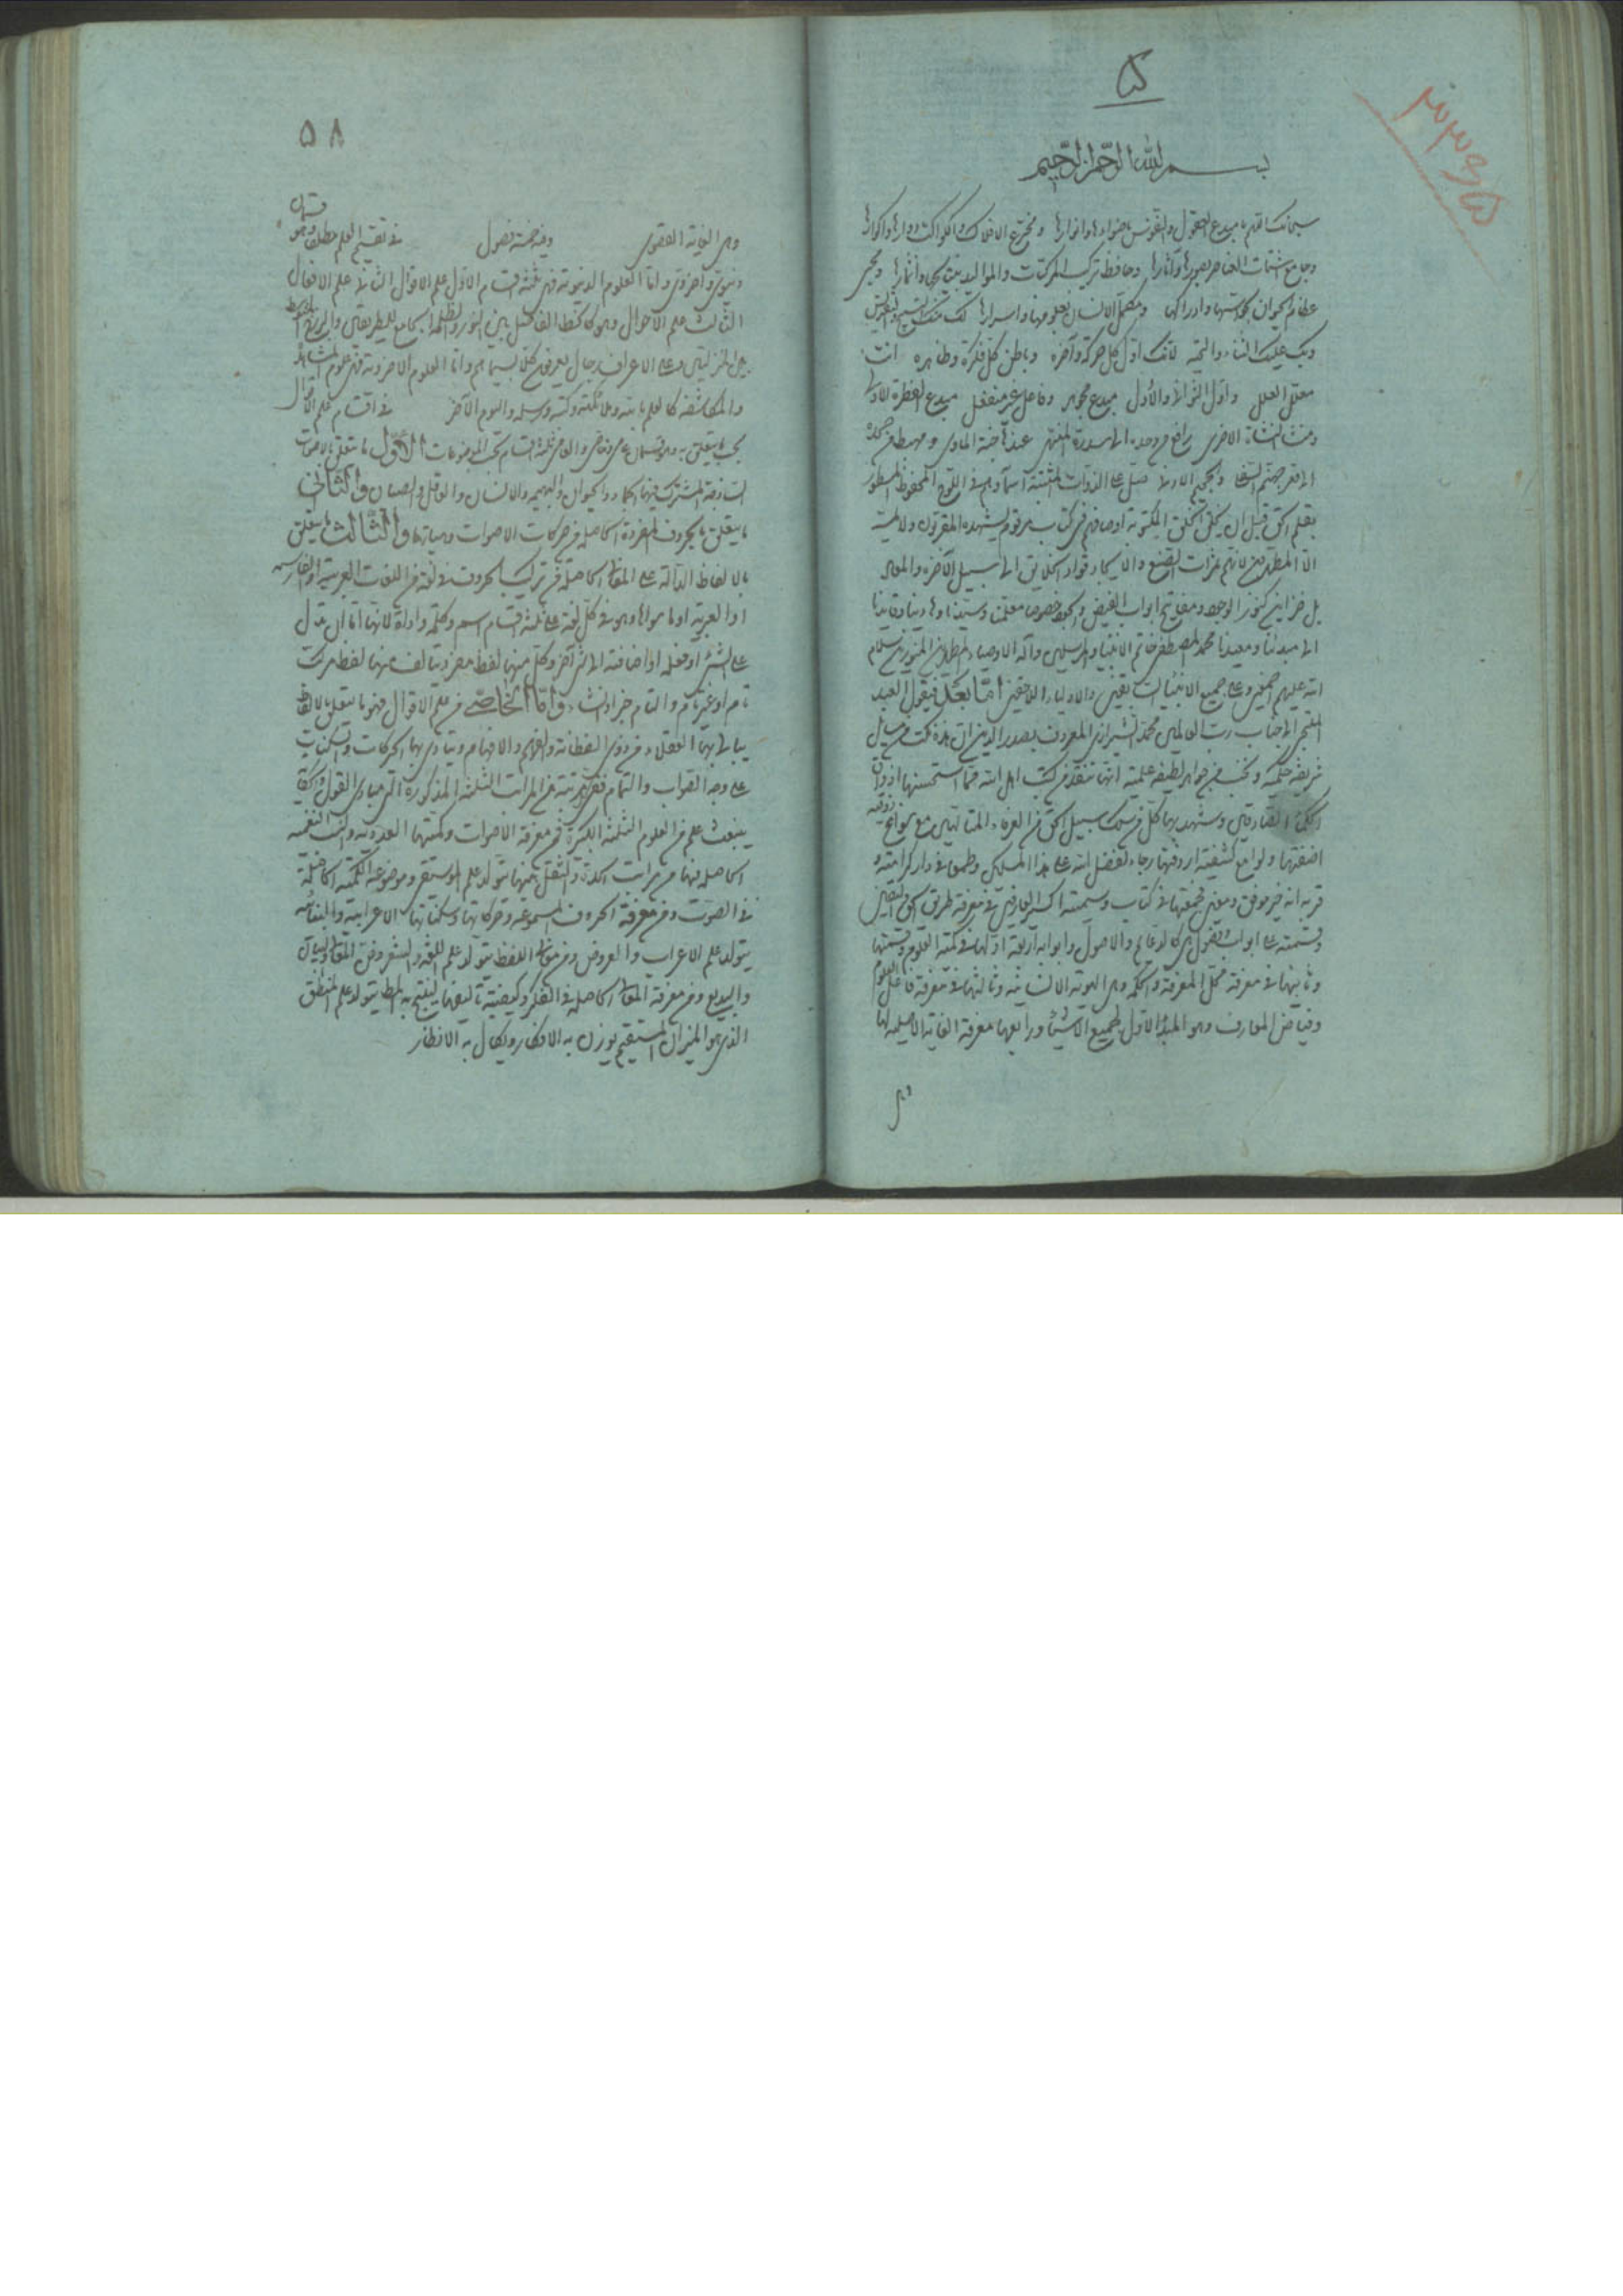 بسم الله الرحمن الرحيم
سبحانك اللهم يا مبدع العقول والنفوس باضوائها وانوارها ومخترع الافلاك والكواكب وادوارها واكوارها
وجامع شتات العناصر بصورها وآثارها وحافظ تركيب المركبات والمواليد
عظام الحيوان وادراكها ومكمل الانسان بعلومها واسرارها لك منك التسبيح والتقديس
وبك عليك الثناء والتحية لانك اول كل حركة وآخره وباطن كل فكرة وظاهره انت
معلل العلل واول الثوانى والأول مبدع وفاعل غير منفعل مبدع الفطرة الاولى
ومنشئ النشأة الاخرى رافع الى سدرة المنتهى عندها جنة المأوى
الى قعر جهنم السفلى اللوح المحفوظ المسطور
بقلم الحق قبل ان يخلق الخلق المكتوبة اوصافهم فى كتاب مرقوم يشهده المقربون ولا يمسه
الا المطهرون لانهم ثمرات الصنع والايجاد وقواد الخلايق الى سبيل الآخرة والمعاد
بل خزاين كنوز الوجود ومفاتيح ابواب الفيض والجود خصوصا معلمنا وسيدنا وهادينا وقايدنا
الى مبدئنا ومعيدنا محمد المصطفى خاتم الانبياء والمرسلين وآله الاوصياء المطهرين المنورين سلام
الله عليهم اجمعين وعلى جميع الانبياء السابقين والاولياء اللاحقين اما بعد فيقول العبد
الملتجى الى جناب رب العالمين محمد الشيرازى المعروف بصدر الدين ان هذه نكت من مسايل
شريفة حكمية ونخب من جواهر لطيفة علمية انها من كتب اهل الله مما استحسنها اذواق
الحكماء الصادقين وشهد بها كل من سلك سبيل الحق من العرفاء المتالهين مع سوانح ذوقية
اضفتها ولوامع كشفية اردفتها رجاء لفضل الله على هذا المسكين وطمعا فى دار كرامته و
قربه انه خير موفق ومعين فجمعتها فى كتاب وسميته اكسير العارفين فى معرفة طريق الحق واليقين
وقسمته على ابواب وفصول هى كالدعايم والاصول وابوابه اربعة اولها فى كمية العلوم وقسمتها
وثانيها فى معرفة محل المعرفة والحكمة وهى الهوية الانسانية وثالثها فى معرفة فاعل العلوم
وفياض المعارف وهو المبدأ الاول لجميع الاشياء ورابعها معرفة الغاية الاصلية لها
وهى
۵۸
وهى الغاية القصوى وفيه خمسة فصول فى تقسيم العلم مطلقا وهو قسمان
دنيوى واخروى واما العلوم الدنيوية فهى ثلثة اقسام الاول علم الاقوال الثانى علم الافعال
الثالث علم الاحوال وهو كالخط الفاصل بين النور والظلمة الجامع للطريقين والبرزخ المتوسط
بين المنزلتين وعلى الاعراف رجال يعرفون كلا بسيماهم واما العلوم الاخروية فهى علوم المشاهدة
والمكاشفة كالعلم بالله وملائكته وكتبه ورسله واليوم الآخر فى اقسام علم الاقوال
بحسب ما يتعلق به وهو قسمان عامى وخاصى والعامى ثلثة اقسام بحسب الموضوعات الاول ما يتعلق بالاصوات
الساذجة المشترك فيها الجماد والحيوان والبهيمة والانسان والعاقل والصبيان والثانى
ما يتعلق بالحروف المفردة الحاصلة من حركات الاصوات وهيأتها والثالث ما يتعلق
بالالفاظ الدالة على المعانى الحاصلة من تركيب الحروف فى لغة من اللغات العربية او الفارسية
او العبرية او ما سواها وهو فى كل لغة على ثلثة اقسام اسم وكلمة واداة لانها اما ان تدل
على الشىء او فعله او اضافته الى شىء آخر وكل منها لفظ مفرد يتالف منها لفظ مركب
تام او غير تام والتام خبر او انشاء واما الخاصى من علم الاقوال فهو ما يتعلق بالالفاظ
من ذوى الفطانة والفهم والافهام ويتادى بها الحركات والسكنات
على وجه الصواب والتمام ففى كل مرتبة من المراتب الثلثة المذكورة التى هى مبادى القول والكلام
ينبعث علم من العلوم الثلثة الكبيرة فمن معرفة الاصوات وكميتها العددية والنسب النغمية
الحاصلة فيها من مراتب الحدة والثقل بينها يتولد علم الموسيقى وموضوعه الكمية الحاصلة
فى الصوت ومن معرفة الحروف المسموعة وحركاتها وسكناتها الاعرابية والبنائية
يتولد علم الاعراب والعروض ومن معانى اللفظ يتولد علم اللغة والشعر وفن المعانى والبيان
والبديع ومن معرفة المعانى الحاصلة فى الفكر وكيفية تأليفها لينتج به المطالب يتولد علم المنطق
الذى هو الميزان المستقيم يوزن به الافكار ويكال به الانظار